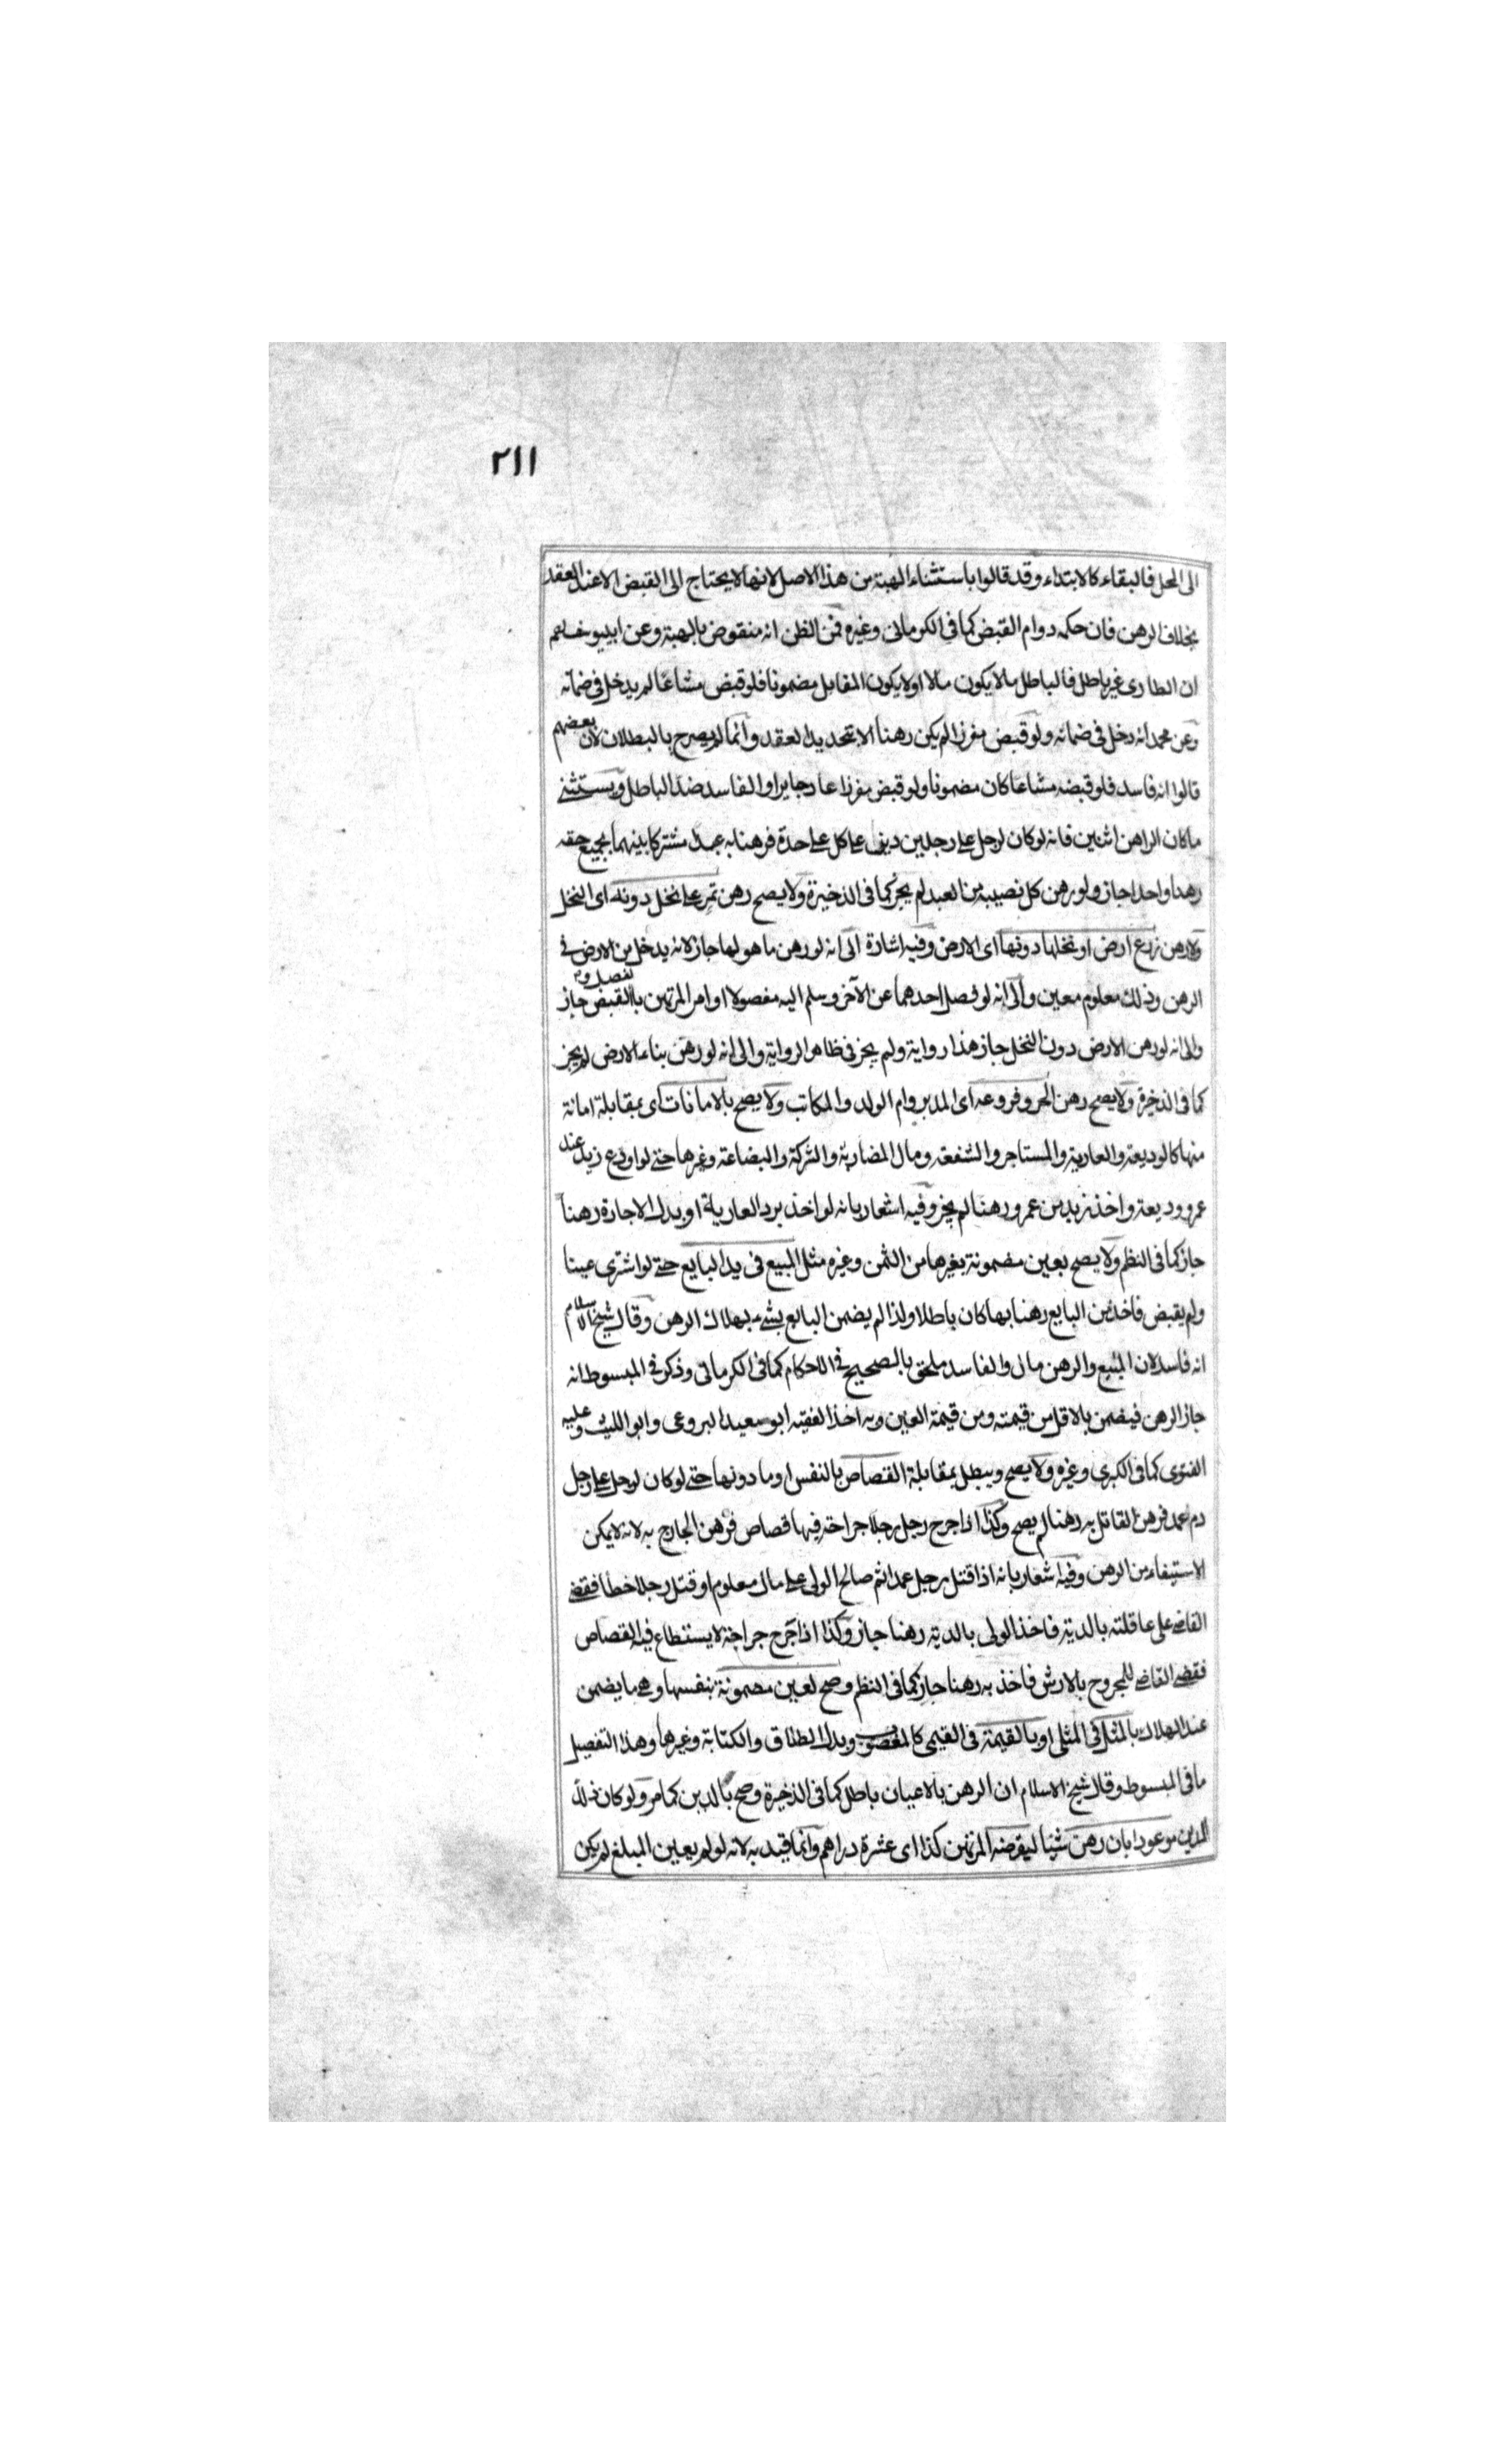 ٢١١
الى المحل فالبقاء كالابتداء وقد قالوا باستثناء الهبة من هذا الاصل لانها لا يحتاج الى القبض الا عند العقد
بخلاف الرهن فان حكمه دوام القبض كما فى الكرمانى وغيره فمن الظن انه منقوض بالهبة وعن ابييوسف
ان الطارى غير باطل فالباطل ما لا يكون مالا او لا يكون المقابل مضمونا فلو قبض مشاعا لم يدخل فى ضمانه
وعن محمد انه دخل فى ضمانه ولو قبض مفرزا لم يكن رهنا الا بتجديد العقد وانما لم يصرح بالبطلان لان بعضهم
قالوا انه فاسد فلو قبضه مشاعا كان مضمونا ولو قبض مفرزا عاد جايزا والفاسد ضد الباطل ويستثنى
ما كان الراهن اثنين فانه لو كان لرجل على رجلين دين على كل على حدة فرهنا به عبدا مشتركا بينهما بجميع حقه
رهنا واحدا جاز ولو رهن كل نصيبه من العبد لم يجز كما فى الذخيرة ولا يصح رهن تمر على نخل دونه اى النخل
ولا رهن زرع ارض او نخلها دونها اى الارض وفيه اشارة الى انه لو رهن ما هو لها جاز لانه يدخل من الارض فى
الرهن وذلك معلوم معين والى انه لو فصل احدهما عن الآخر وسلم اليه مفصولا او امر المرتهن بالقبض جاز
والى انه لو رهن الارض دون النخل جاز هذا رواية ولم يجز فى ظاهر الرواية والى انه لو رهن بناء الارض لم يجز
كما فى الذخيرة ولا يصح رهن الحر وفروعه اى المدبر وام الولد والمكاتب ولا يصح بالامانات اى بمقابلة امانة
منها كالوديعة والعارية والمستاجر والشفعة ومال المضاربة والشركة والبضاعة وغيرها حتى لو اودع زيد عند
عمرو وديعة واخذ زيد من عمرو رهنا لم يجز وفيه اشعار بانه لو اخذ برد العارية او بدل الاجارة رهنا
جاز كما فى النظم ولا يصح بعين مضمونة بغيرها من الثمن وغيره مثل المبيع فى يد البايع حتى لو اشترى عينا
ولم يقبض فاخذ من البايع رهنا بها كان باطلا ولذا لم يضمن البايع بشىء بهلاك الرهن وقال شيخ الاسلام
انه فاسد لان المبيع والرهن مال والفاسد ملحق بالصحيح فى الاحكام كما فى الكرمانى وذكر فى المبسوط انه
جاز الرهن فيضمن بالاقل من قيمته ومن قيمة العين وبه اخذ الفقيه ابو سعيد البروعى وابو الليث وعليه
الفتوى كما فى الكبرى وغيره ولا يصح ويبطل بمقابلة القصاص بالنفس او ما دونها حتى لو كان لرجل على رجل
دم عمد فرهن القاتل به رهنا لم يصح وكذا اذا جرح رجل رجلا جراحة فيها قصاص فرهن الجارح به لانه لا يمكن
الاستيفاء من الرهن وفيه اشعار بانه اذا قتل رجل عمدا ثم صالح الولى على مال معلوم او قتل رجلا خطأ فقضى
القاضى على عاقلته بالدية فاخذ الولى بالدية رهنا جاز وكذا اذا جرح جراحة لا يستطاع فيه القصاص
فقضى القاضى للمجروح بالارش فاخذ به رهنا جاز كما فى النظم وصح لعين مضمونة بنفسها وهى ما يضمن
عند الهلاك بالمثل فى المثلى او بالقيمة فى القيمى كالمغصوب وبدل الطلاق والكتابة وغيرها وهذا التفصيل
ما فى المبسوط وقال شيخ الاسلام ان الرهن بالاعيان باطل كما فى الذخيرة وصح بالدين كما مر ولو كان ذلك
الدين موعودا بان رهن شيئا ليقرضه المرتهن كذا اى عشرة دراهم وانما قيد به لانه لو لم يعين المبلغ لم يكن